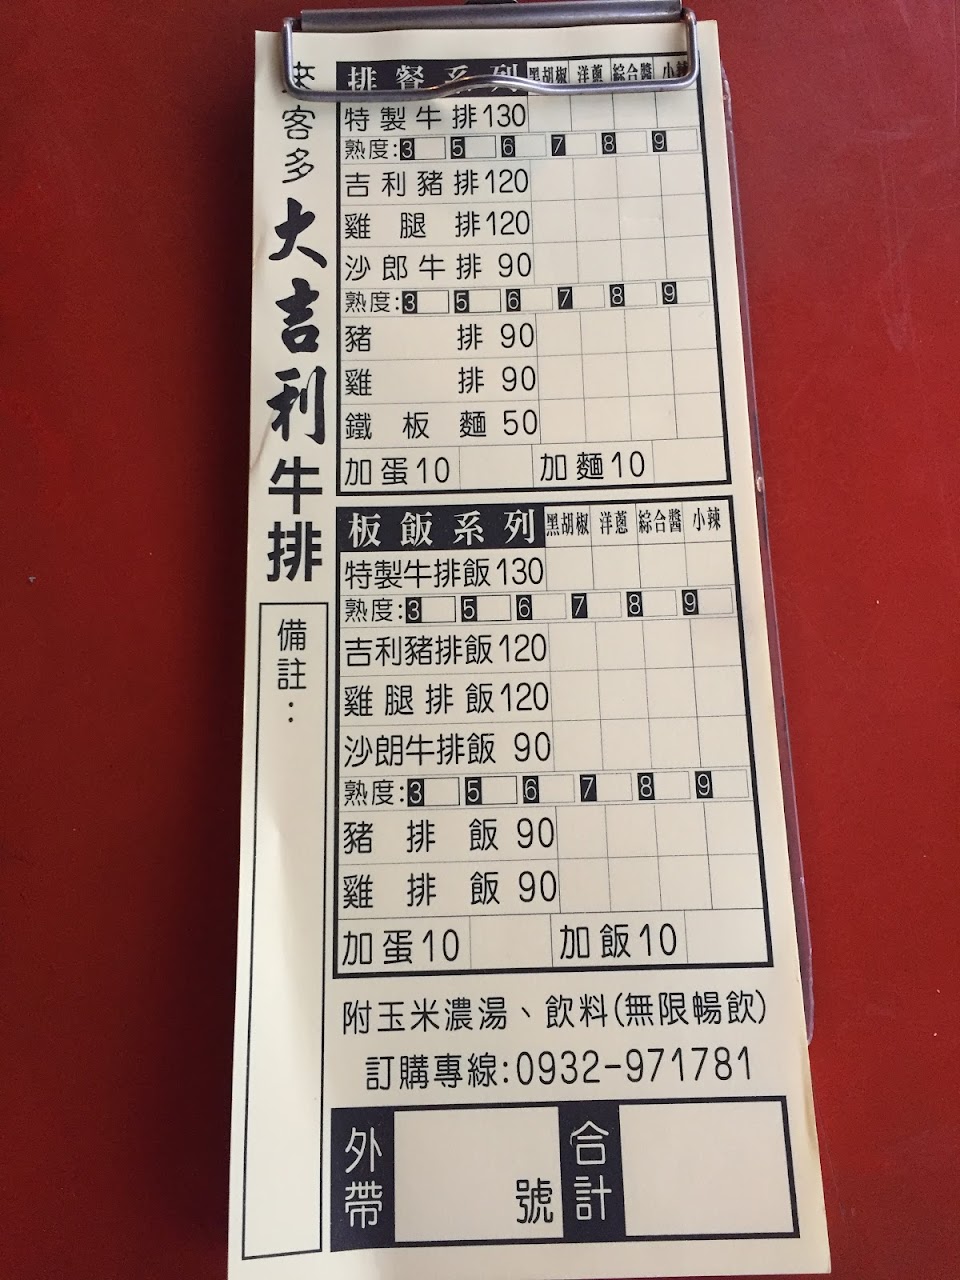 來客多
大吉利牛排
備註：
排餐系列 黑胡椒 洋蔥 綜合醬 小辣
特製牛排130
熟度:3 5 6 7 8 9
吉利豬排120
雞腿排120
沙郎牛排 90
熟度:3 5 6 7 8 9
豬排 90
雞排 90
鐵板麵 50
加蛋10 加麵10
板飯系列 黑胡椒 洋蔥 綜合醬 小辣
特製牛排飯130
熟度:3 5 6 7 8 9
吉利豬排飯120
雞腿排飯120
沙朗牛排飯 90
熟度:3 5 6 7 8 9
豬排飯 90
雞排飯 90
加蛋10 加飯10
附玉米濃湯、飲料(無限暢飲)
訂購專線:0932-971781
外帶 號 合計